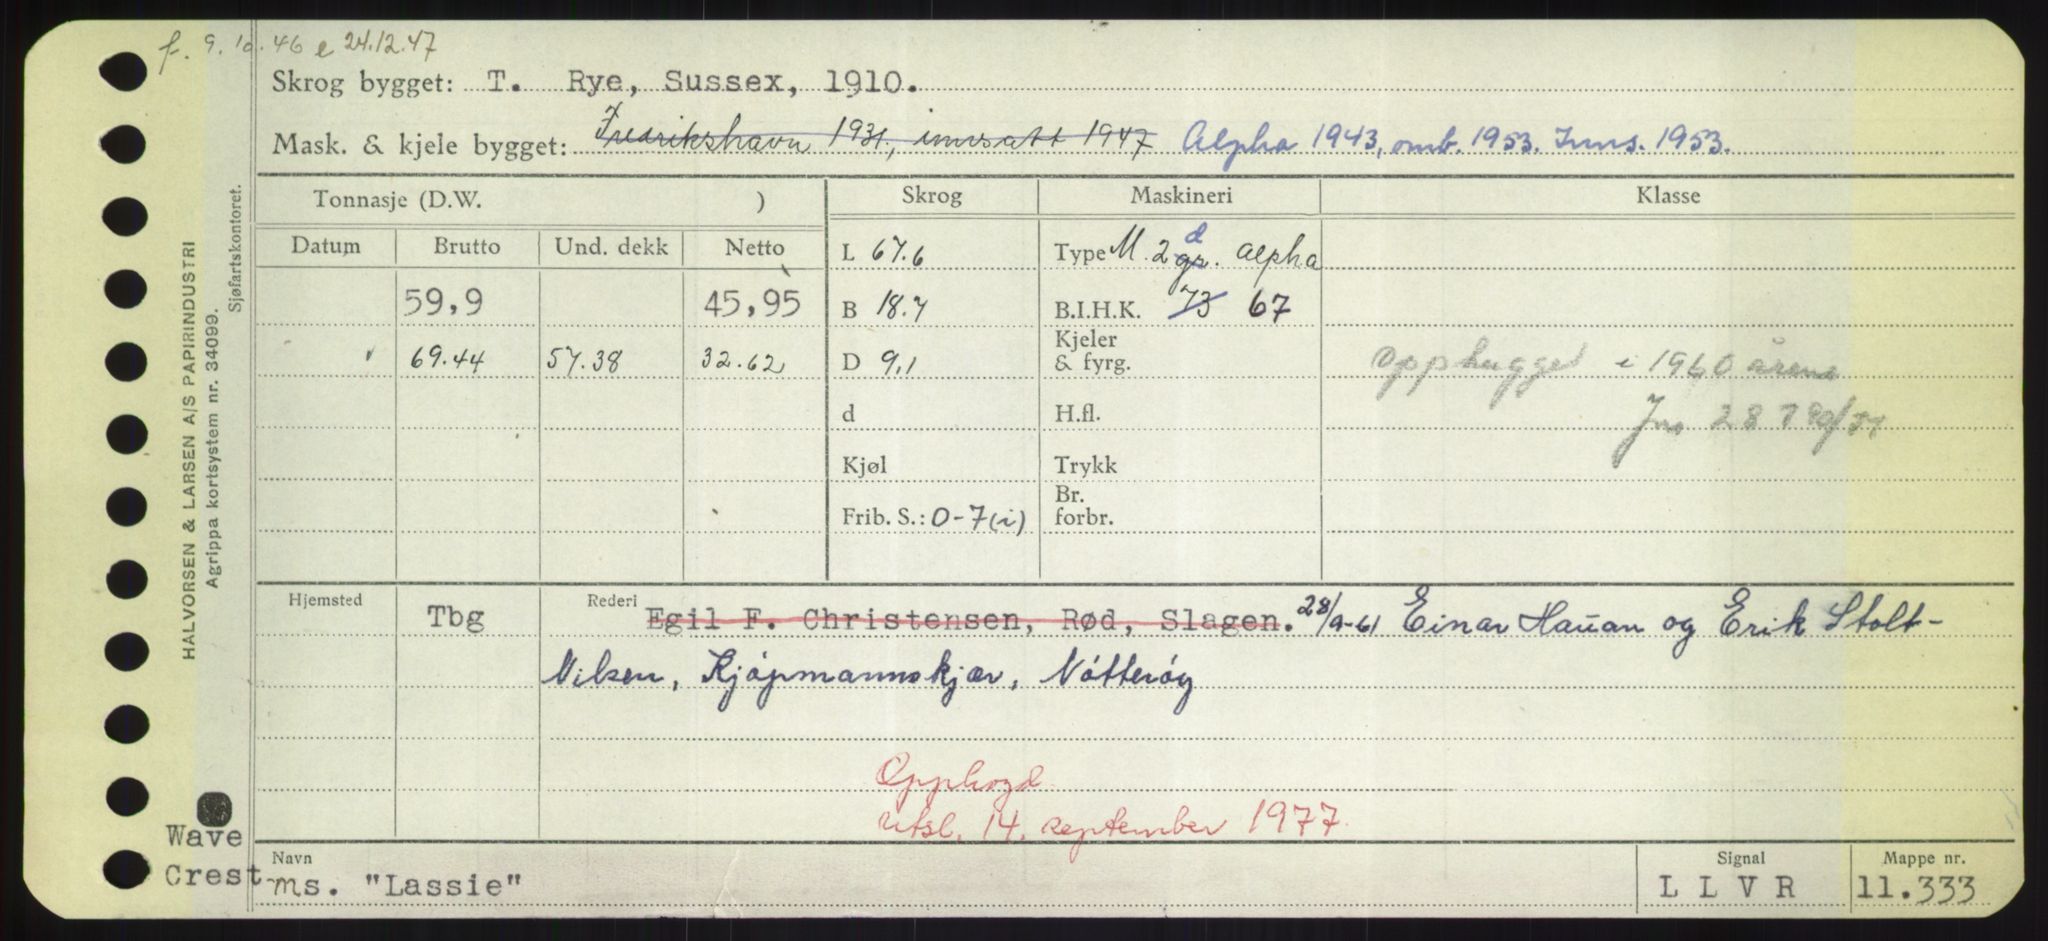 f. 9.10.46 e 24.12.47
Skrog bygget: T. Rye, Sussex, 1910.
Mask. & kjele bygget: Fredrikshavn 1931, innsatt 1947 Alpha 1943, omb. 1953. Inns. 1953.
Tonnasje (D.W. ) Skrog Maskineri Klasse
Datum Brutto Und. dekk Netto L 67.6 Type M. 2 gr. d Alpha
59,9 45,95 B 18.7 B.I.H.K. 73 67
69.44 57.38 32.62 D 9,1 Kjeler & fyrg. Opphugget i 1960 årene
d H.fl. Jnr 28790/71
Kjøl Trykk
Frib. S.: 0-7(i) Br. forbr.
Hjemsted Tbg Rederi Egil F. Christensen, Rød, Slagen. 28/9-61 Einar Hauan og Erik Stolt-
Nilsen, Kjøpmannskjær, Nøtterøy
Opphogd.
Utsl. 14. september 1977.
Wave
Crest
Navn Signal Mappe nr.
ms. "Lassie" L L V R 11.333
HALVORSEN & LARSEN A/S PAPIRINDUSTRI
Agrippa kortsystem nr. 34099.
Sjøfartskontoret.